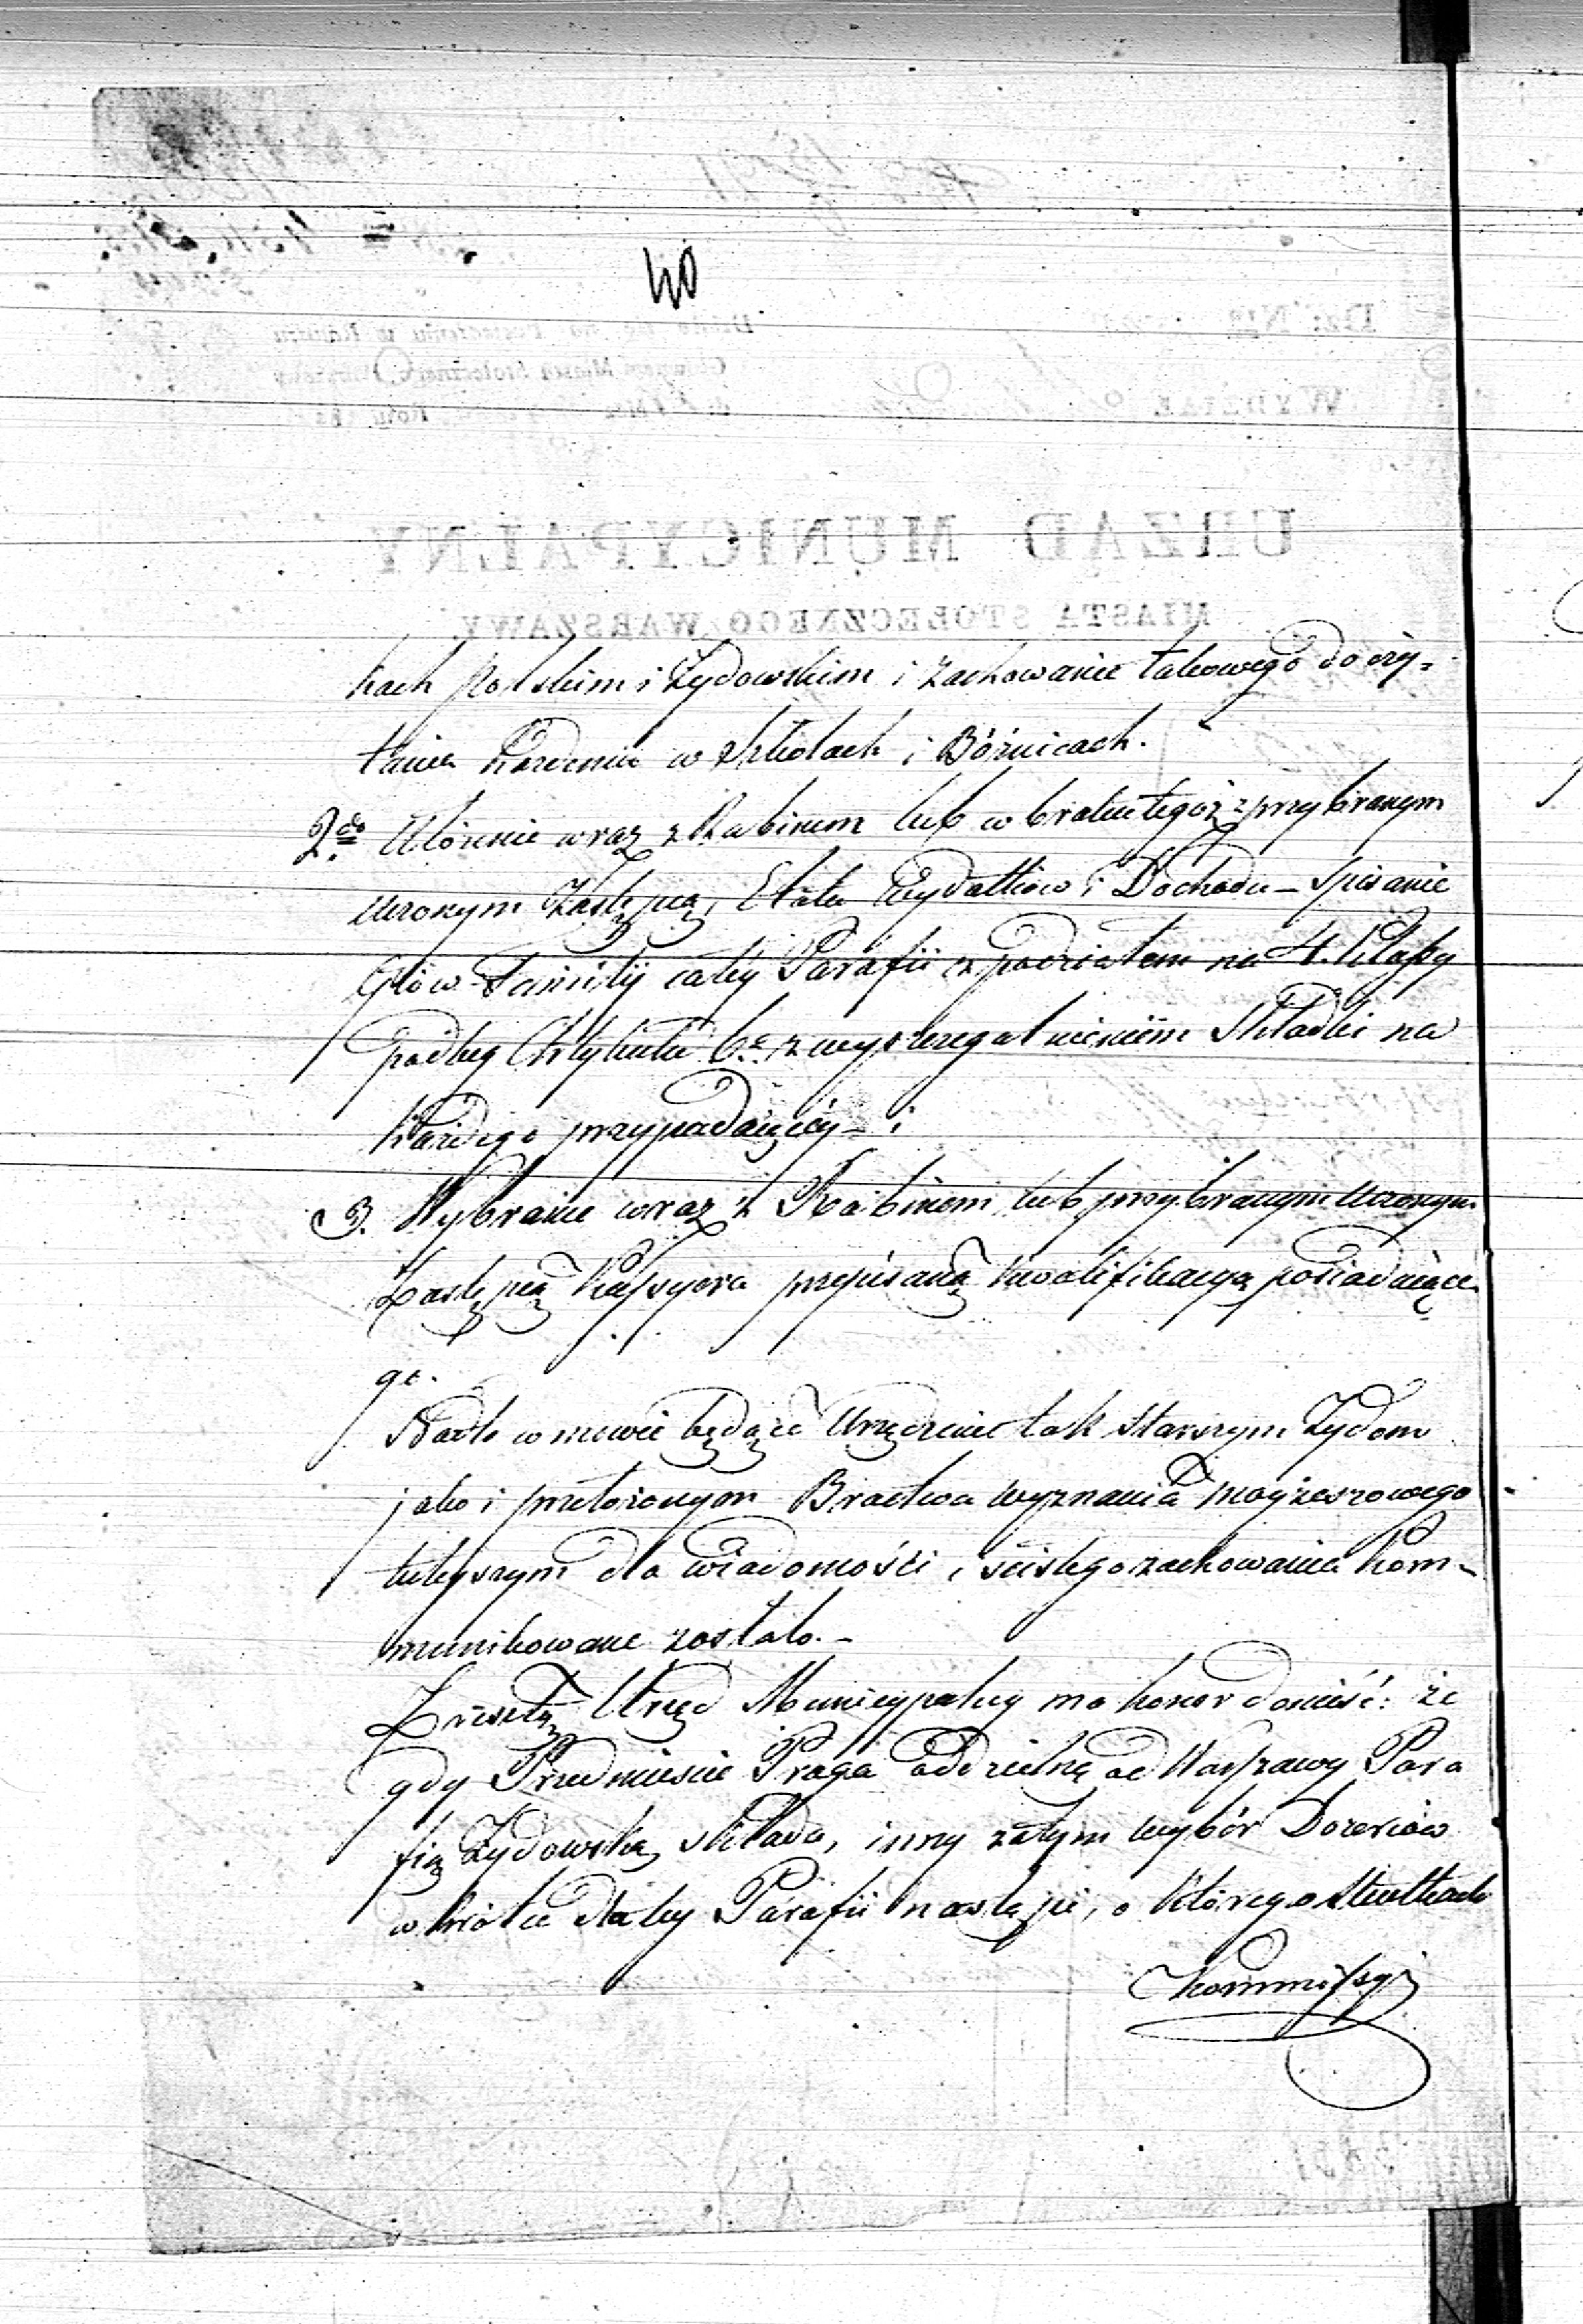 40
kach Polskim i Żydowskim i zachowanie takowego do czy-
tania w Szkołach i Bóżnicach.
2do Ułożenie wraz z Rabinem lub w braku tegoż z przybranym
uczonym Zastępcą, Etatu Wydatków i Dochodu – spisanie
Głów Familij całey Parafii z podziałem na 4. Klassy
podług Artykułu 6o z wyszczegulnieniem Składki na
każdego przypadaiącey – i
3. Wybranie wraz z Rabinem lub przybranym uczonym
Zastępcą Kassyera przepisaną kwalifikacyą posiadaiące-
go.
Nadto w mowie będące Urządzenie tak starszym Żydom
jako i przełożonym Bractwa wyznania moyżeszowego
tuteyszym dla wiadomości i ścisłego zachowania kom-
munikowane zostało. –
Zresztą Urząd Municypalny ma honor donieść: że
gdy Przedmieście Praga oddzielną od Warszawy Para
fią Żydowską składa, inny zatym wybór Dozorców
wkrótce dla tey Parafii nastąpi, o którego skutkach
Kommissyi
URZĄD MUNICYPALNY
MIASTA STOŁECZNEGO WARSZAWY
WYDZIAŁ